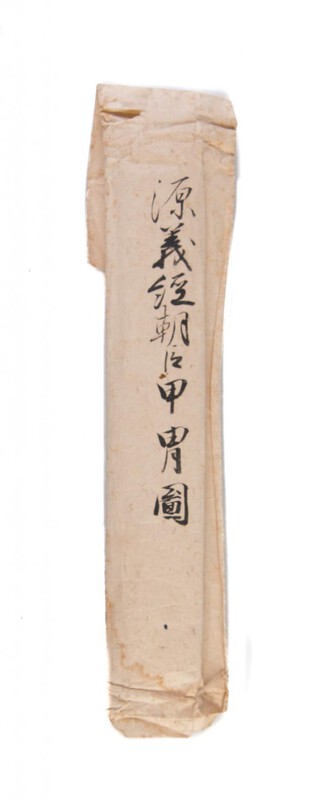 源義經朝臣甲冑圖